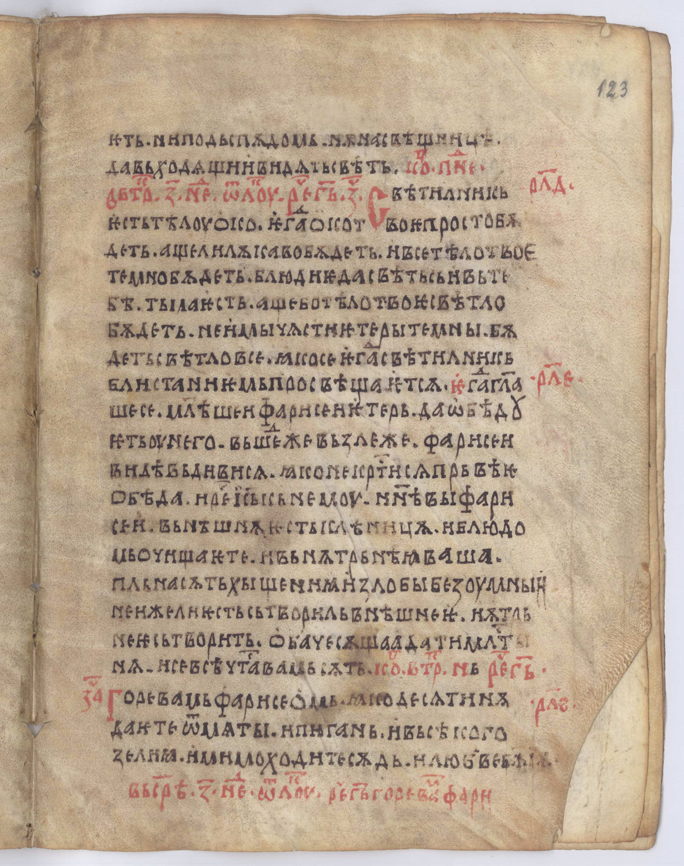 123
ѥть · ни подь спѫдомь · нѫ на свѣщницѣ ·
да вьходѧщии видѧть свѣть · ко҃ · пн҃е ·
вьтр҃ · з҃ · не҃ · ѿ лоу · рег҃ь · з҃ · Свѣтилникь рл҃д ·
ѥсть тѣлоу ѻко · ѥгда ѻко твоѥ просто бѫ
деть · аще ли лѫкаво бѫдеть · и все тѣло твоє
темно бѫдеть · блюди ѥда свѣть сьи вь те
бѣ · тьма ѥсть · аще бо тѣло твоѥ свѣтло
бѫдеть · не имы чѧсти ѥтеры темны · бѫ
деть свѣтло все · ꙗко се ѥгда свѣтилникь
блистаниѥмь просвѣщаѥтсѧ · ѥгда гл҃а рл҃е ·
ше се · млѣше и фарисеи ѥтерь · да ѡбѣдꙋ
ѥть оу него · вьшеⷣ же вьзлеже · фарисеи
видѣвь дивисѧ · ꙗко не крⷭтисѧ прьвѣѥ
ѻбѣда · и рече і҃сь кь немоу · нн҃ѣ вы фари
сеи · вьнѣшнѧꙗ стьклѣницѧ · и блюдо
мь очищаѥте · и вьнѫтрьнѣꙗ ваша ·
пльна сѫть хыщениꙗ и злобы безоумныи
не иже ли ѥсть сьтвориль вьнѣшнеѥ · и ѫтрь
неѥ сьтворить · ѻбаче сѫщаа дадите млⷭты
нѫ · и се всѣ чⷭта вамь сѫть · ко҃ · втр҃ · нь рег҃ь ·
за҃ Горе вамь фарисеѻмь · ꙗко десѧтинѫ рл҃ѕ ·
даѥте ѿ мѧты · и пигань · и вьсѣкого
зелиꙗ · и мимоходите сѫдь · и любьве бж҃иѫ ·
вь срѣ҃ · з҃ · не҃ · ѿ лоу · рег҃ь горе вамь фари